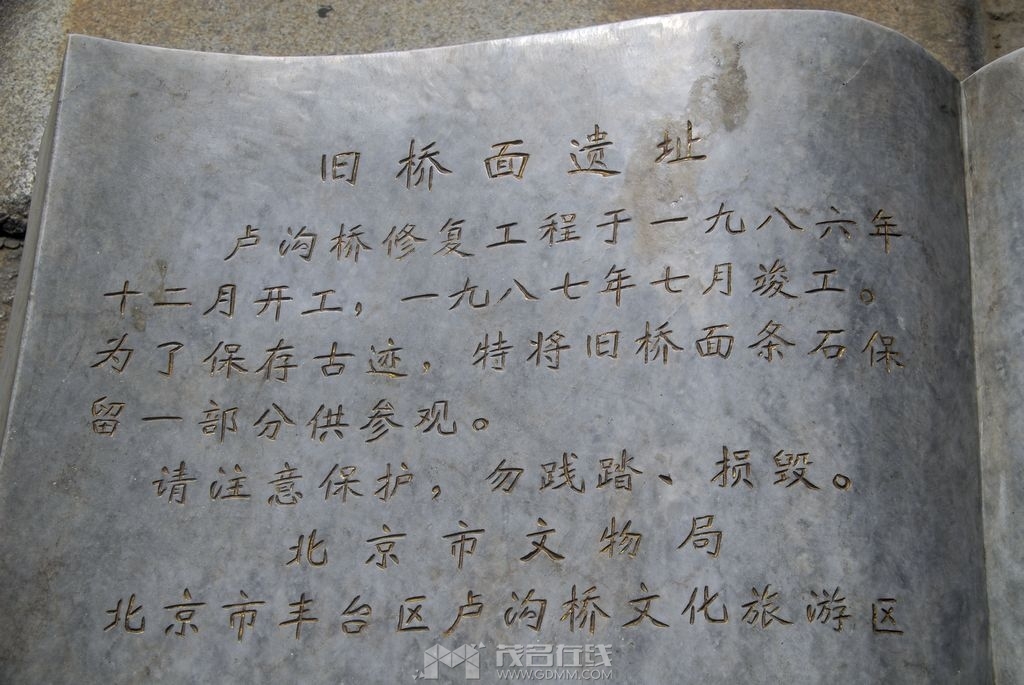 旧桥面遗址
卢沟桥修复工程于一九八六年
十二月开工，一九八七年七月竣工。
为了保存古迹，特将旧桥面条石保
留一部分供参观。
请注意保护，勿践踏、损毁。
北京市文物局
北京市丰台区卢沟桥文化旅游区
茂名在线
WWW.GDMM.COM